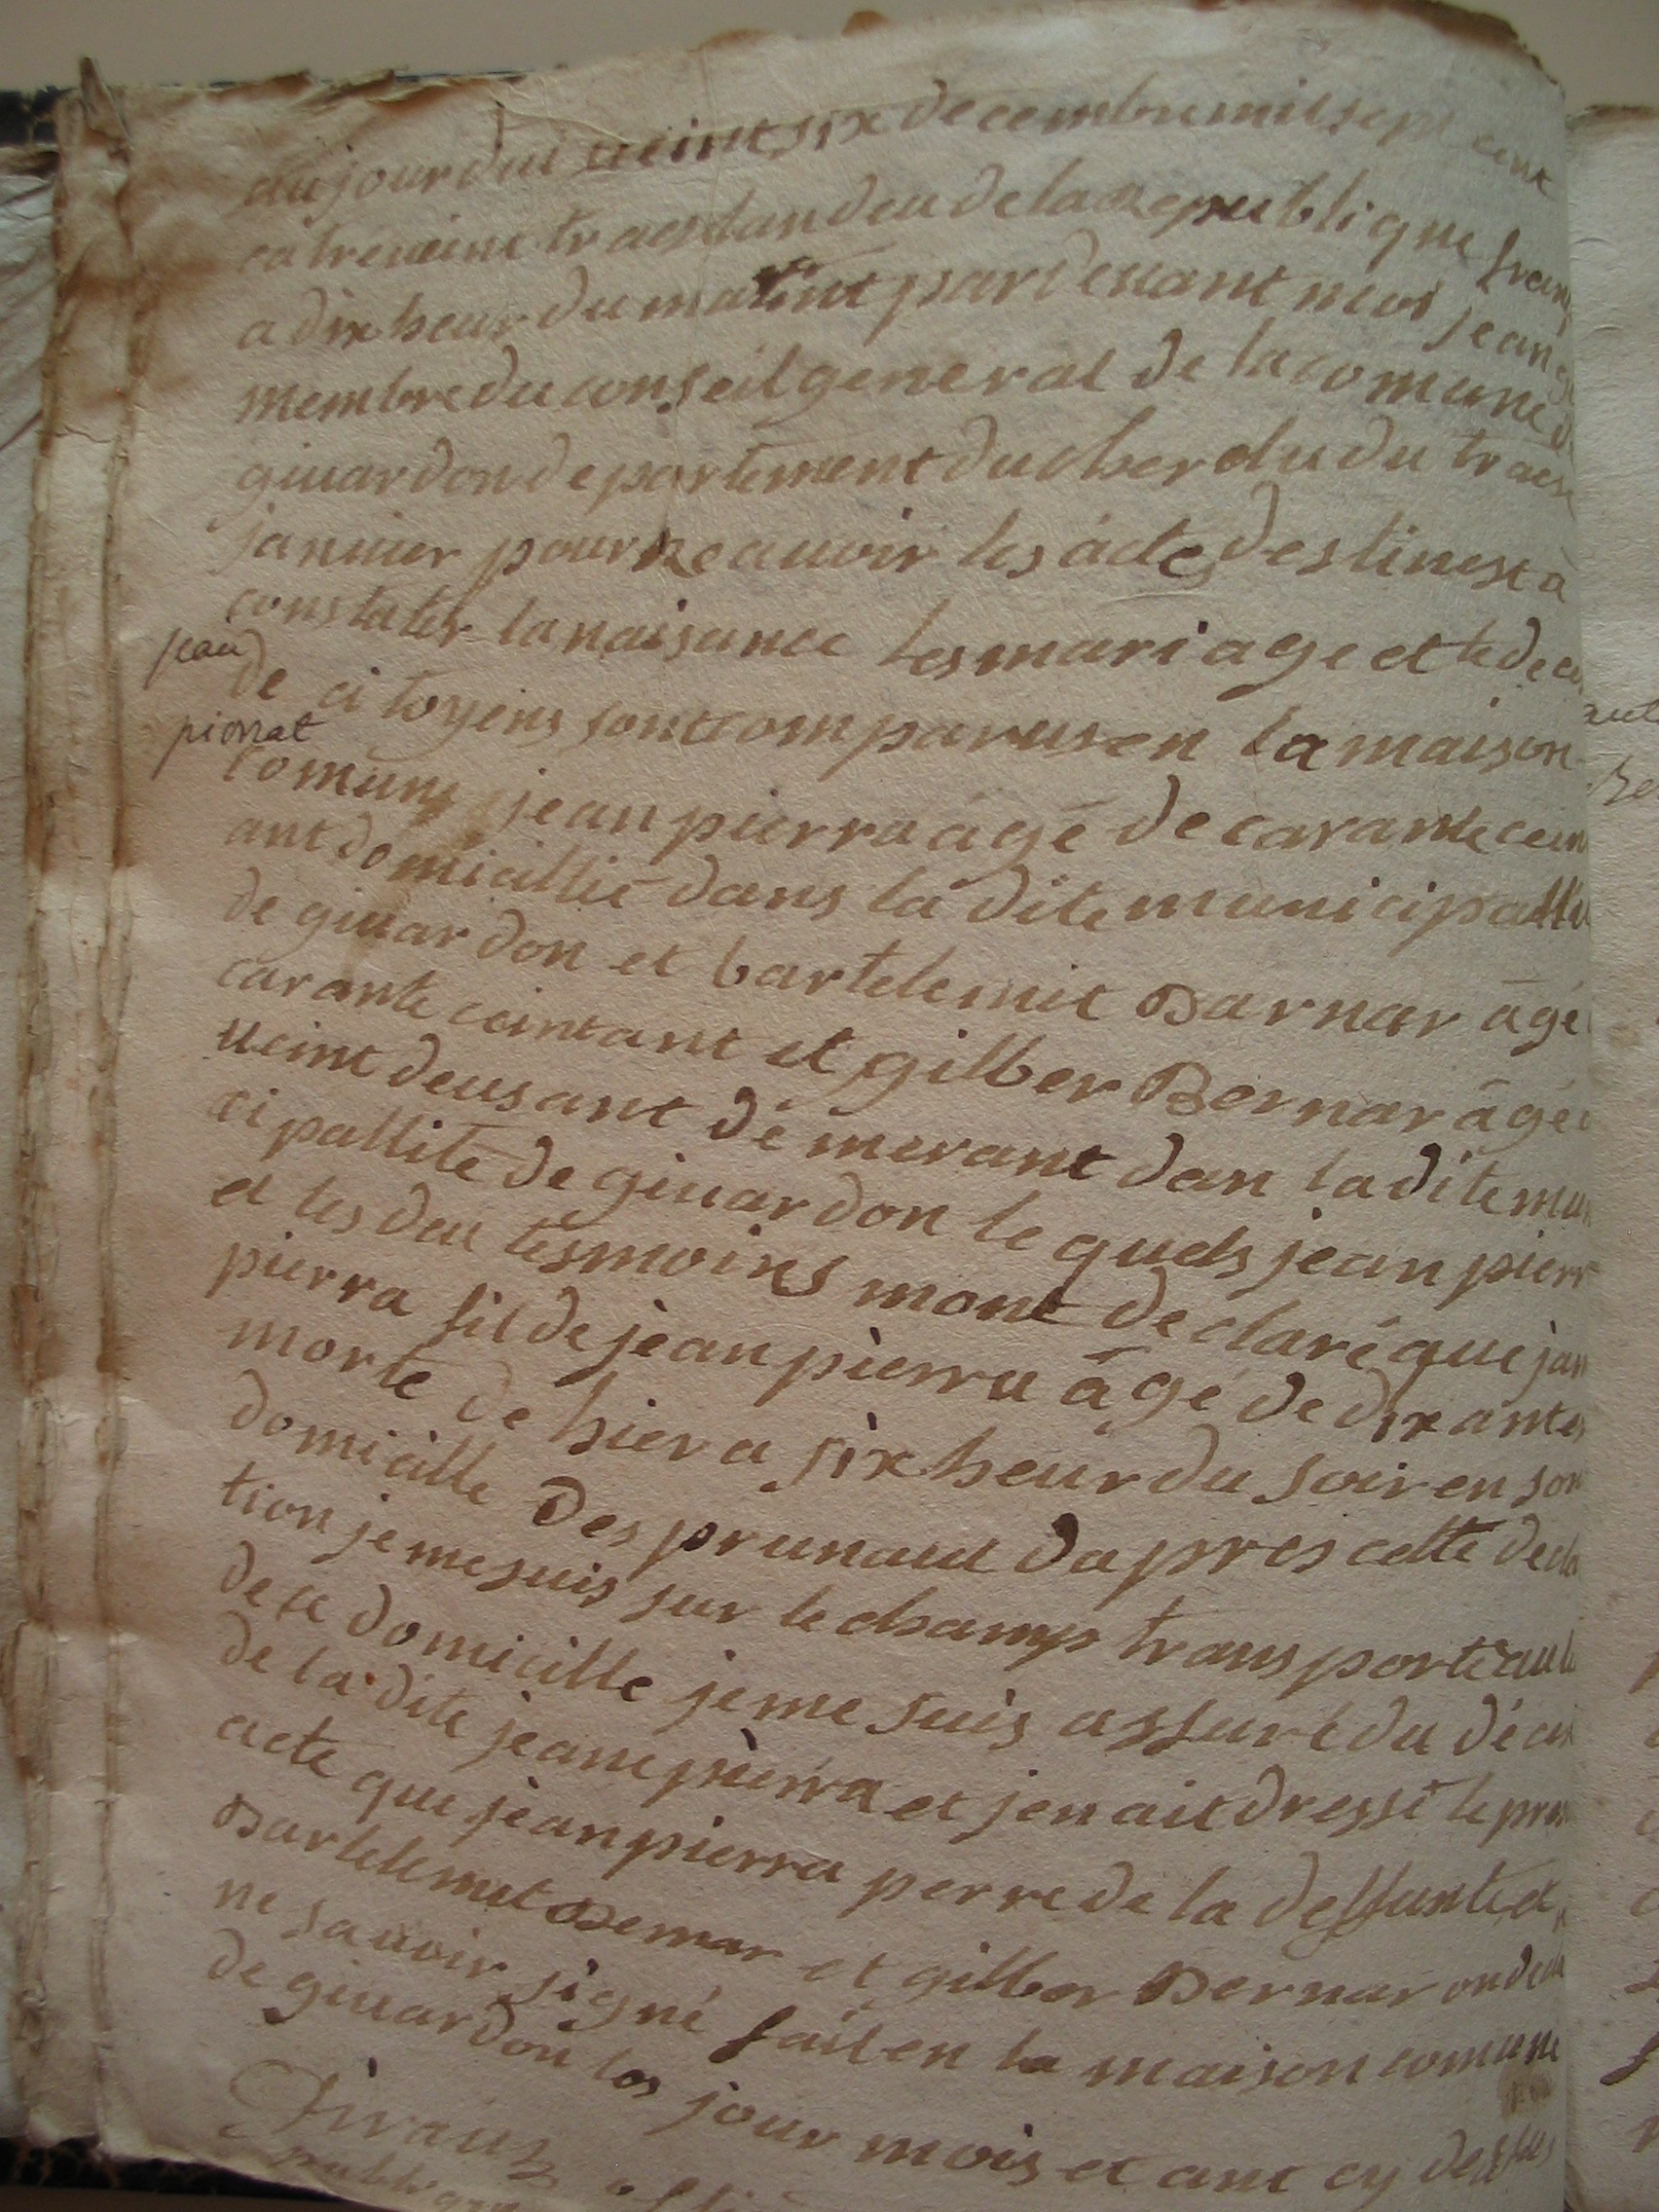 aujourdui veint six decembre mil sept cent
catreveint traes lan deu de la Republique franc
a dix heur du matint pardevant moi jean
membre du conseil general de la comune d
givardon departement du cher elu du traes
janvier pour Reauvoir les acte destinest a
constater la naisance les mariage et le de ce
jean
de citoyens sont comparus en la maison
pierrat
comune jean pierra âgé de carante cein
ant domicillié dans la dite municipallit
de givardon et bartelemit Barnar âgé
carante ceint ant et gilber Bernar âgé
veint deus ant démerant dan la dite mun
cipallité de givardon le quels jean pierr
et les deu tesmoins mont declaré que jan
pierra fil de jean pierra âgé de dix ant es
morte de hier a six heur du soir en son
domicille des prunaut dapres cette decla
tion je me suis sur le champ transporté au l
de ce domicille je me suis assuré du déces
de la dite jeane pierra et jen ait dressé le pres
acte que jean pierra perre de la deffunte et
Bartelemit Bernar et gilber Bernar on decla
ne savoir signé fait en la maison comune
de givardon les jour mois et ant cy dessus
Givaus
publique